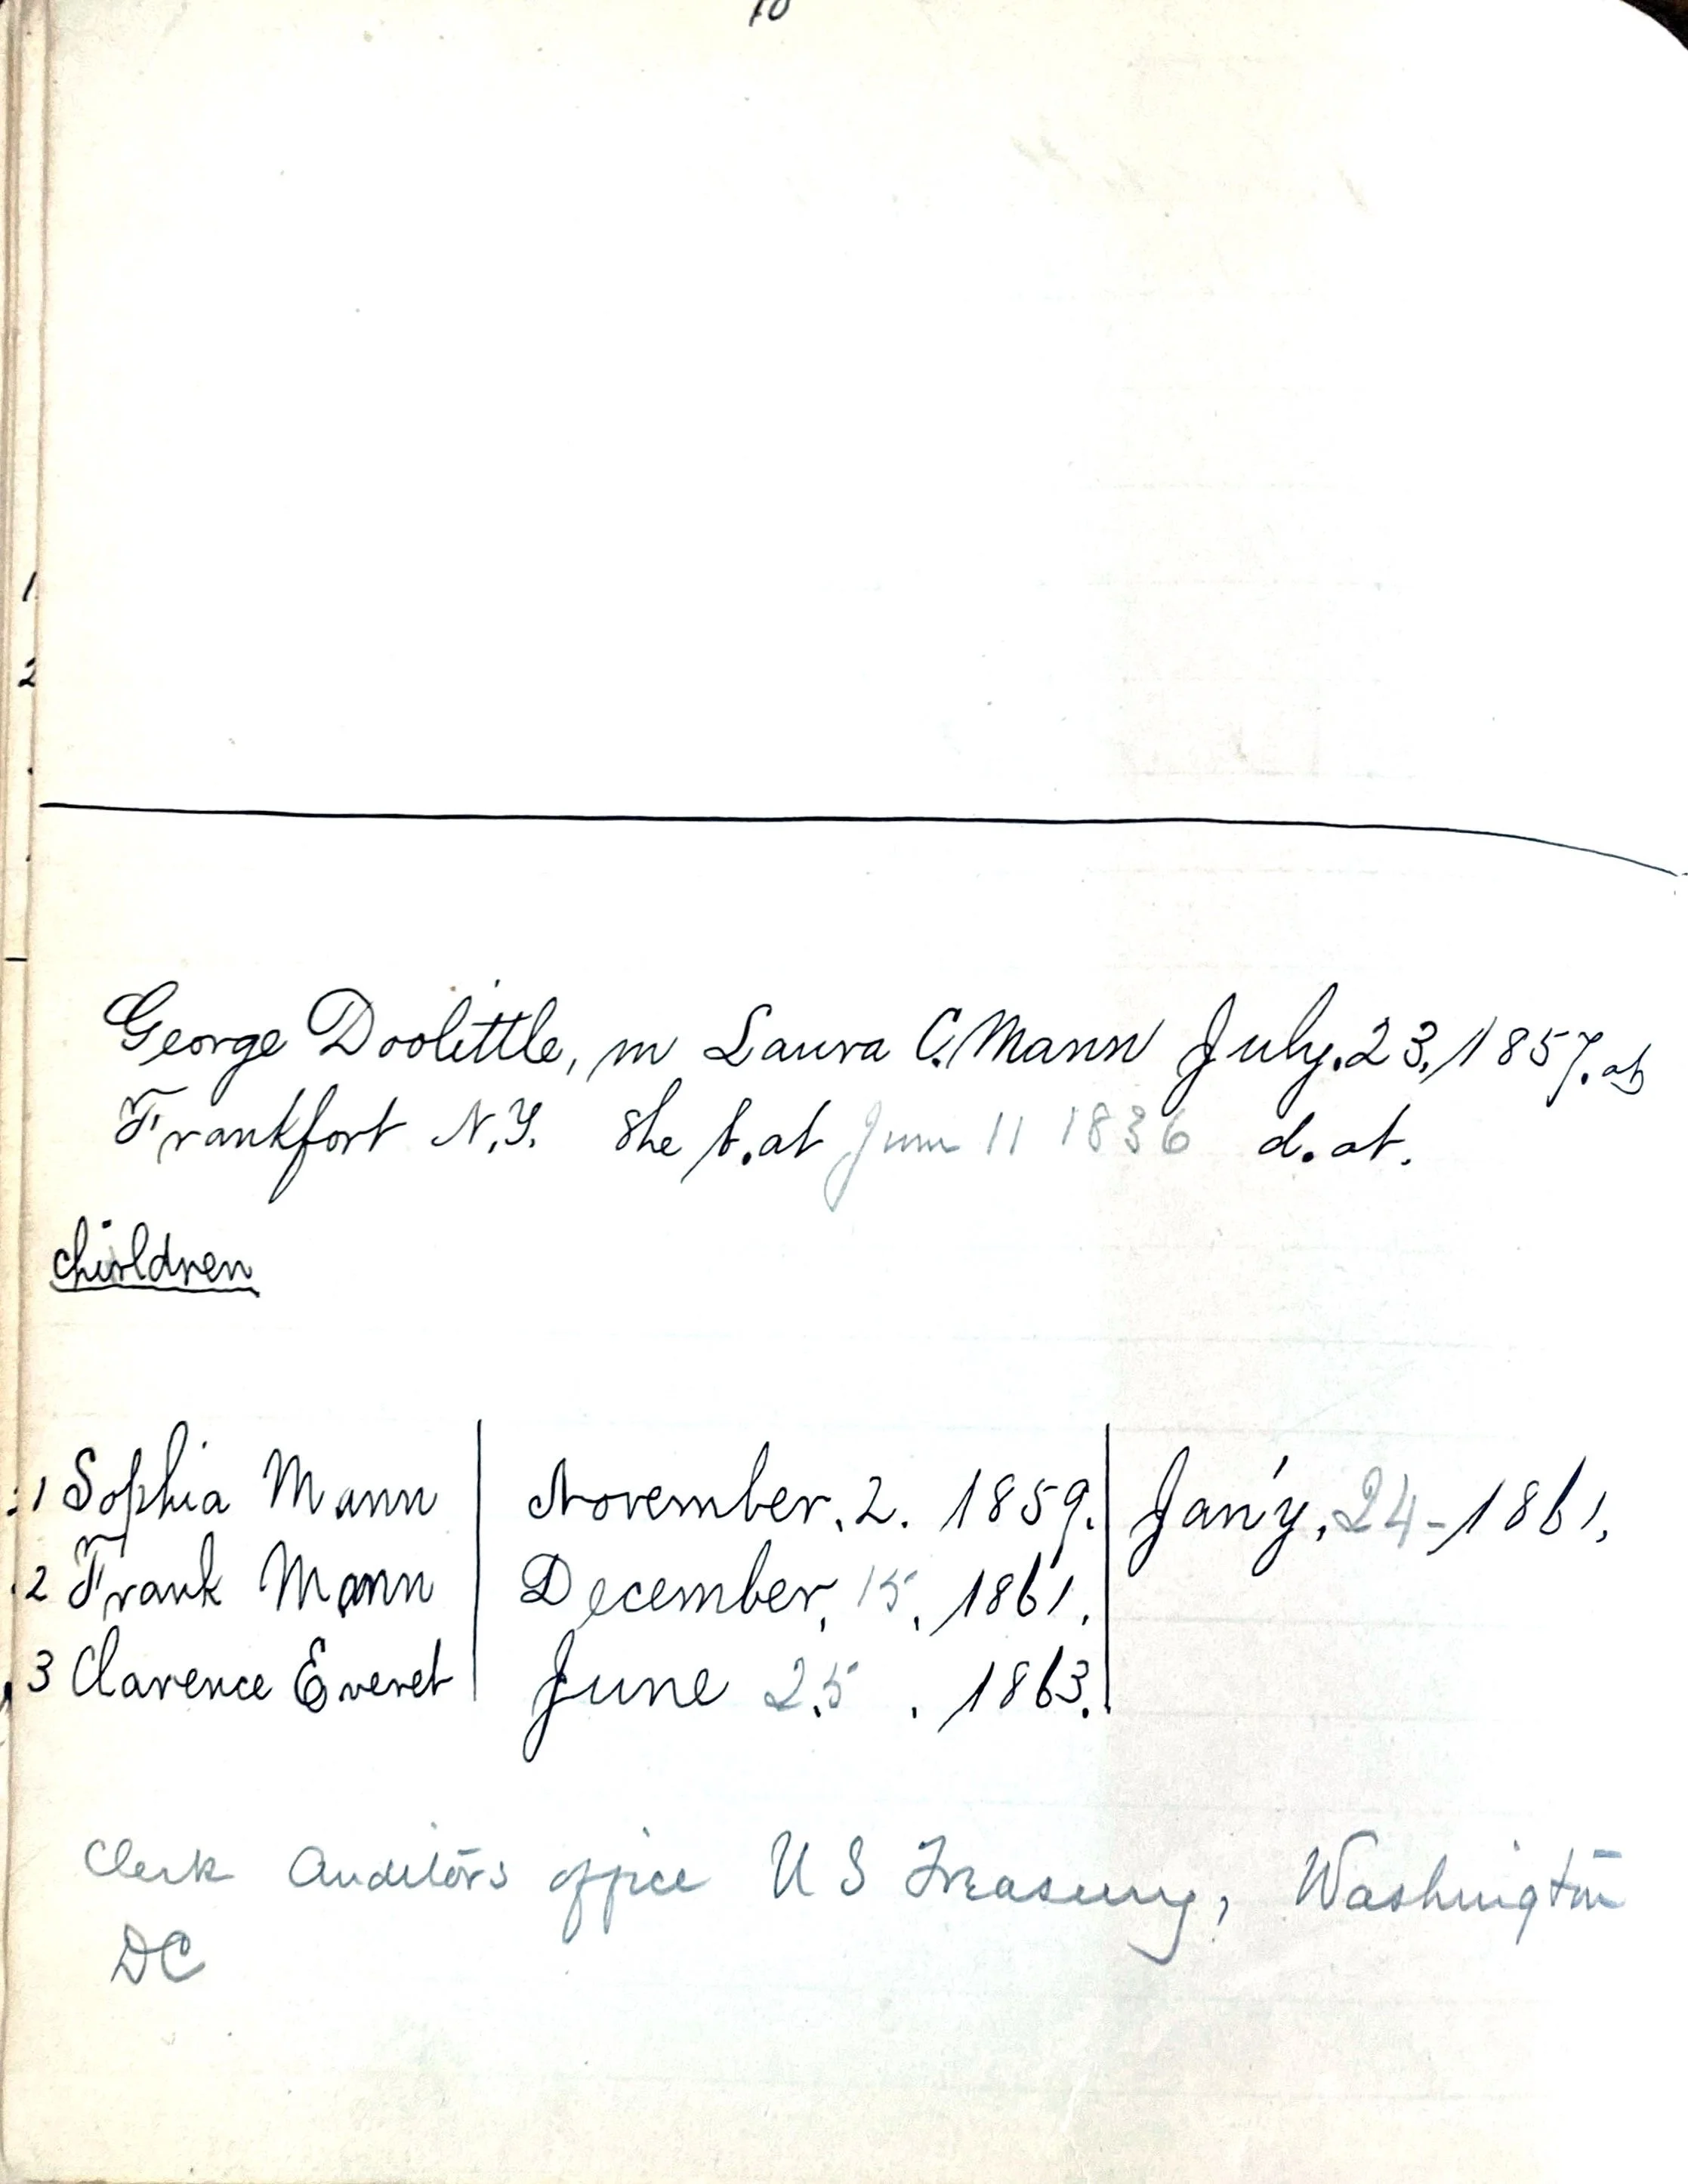 10
1
2
George Doolittle, m Laura C. Mann July. 23, 1857. at
Frankfort N.Y. She b. at June 11 1836 d. at.
Children
1 Sophia Mann November. 2. 1859. Jan'y. 24-1861.
2 Frank Mann December. 15. 1861.
3 Clarence Everet June 25. 1863.
Clerk Auditors office U S Treasury, Washington
DC